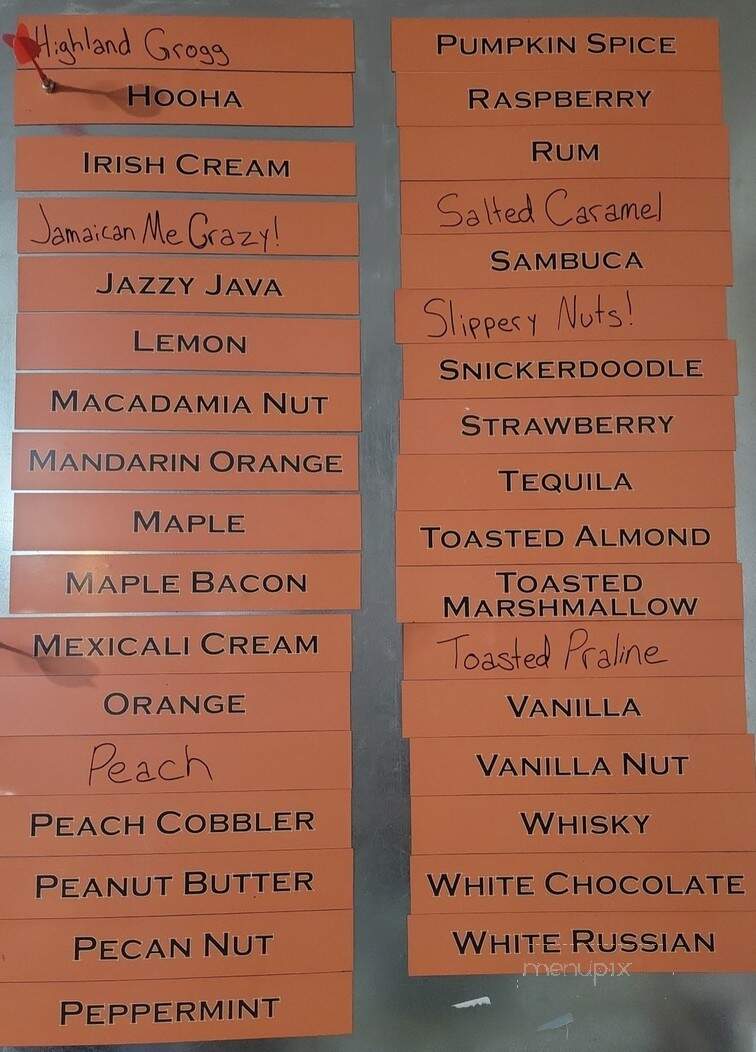 Highland Grogg
HOOHA
IRISH CREAM
Jamaican Me Crazy!
JAZZY JAVA
LEMON
MACADAMIA NUT
MANDARIN ORANGE
MAPLE
MAPLE BACON
MEXICALI CREAM
ORANGE
Peach
PEACH COBBLER
PEANUT BUTTER
PECAN NUT
PEPPERMINT
PUMPKIN SPICE
RASPBERRY
RUM
Salted Caramel
SAMBUCA
Slippery Nuts!
SNICKERDOODLE
STRAWBERRY
TEQUILA
TOASTED ALMOND
TOASTED
MARSHMALLOW
Toasted Praline
VANILLA
VANILLA NUT
WHISKY
WHITE CHOCOLATE
WHITE RUSSIAN
menupix